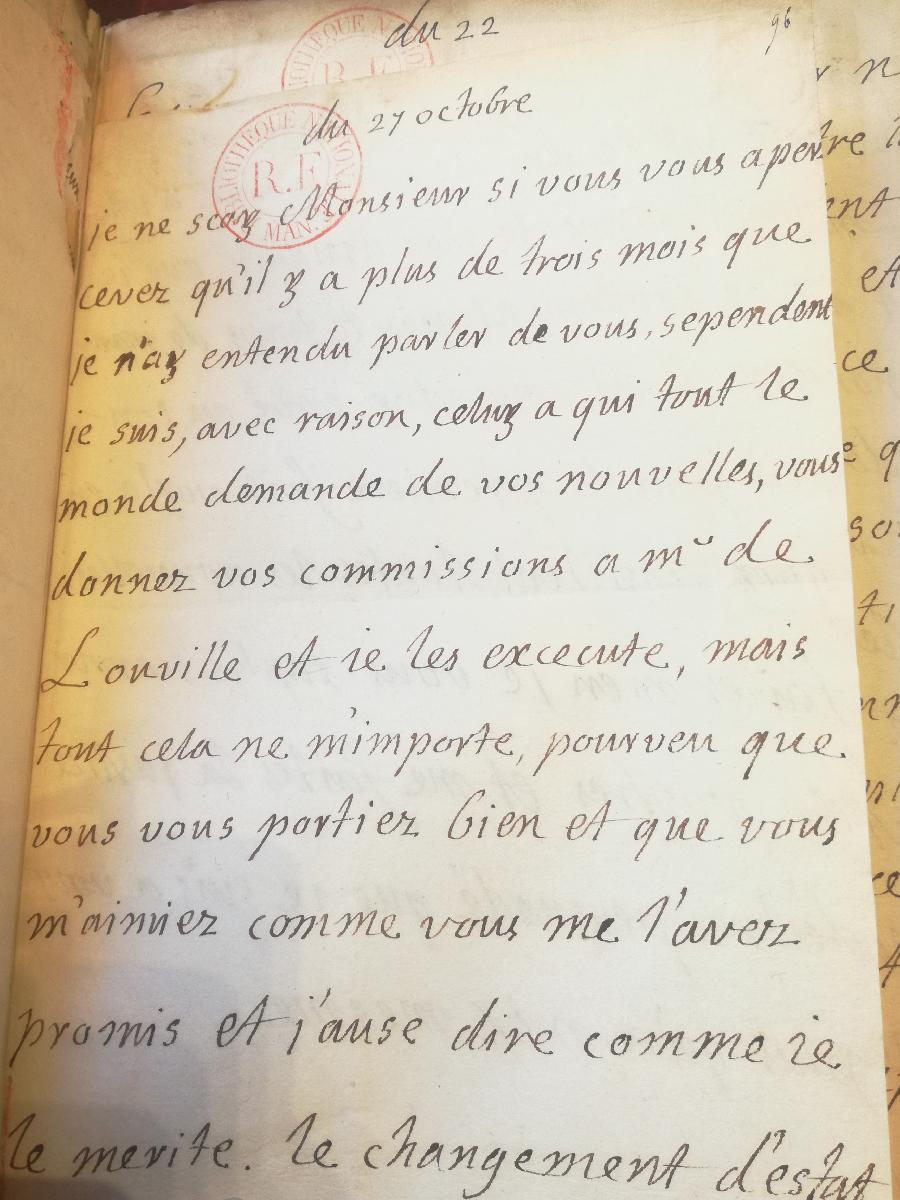 du 22
96
du 27 octobre
BIBLIOTHEQUE NATIONALE
R.F.
MAN.
je ne scay Monsieur si vous vous aper
cevez qu'il y a plus de trois mois que
je n'ay entendu parler de vous, sependent
je suis, avec raison, celuy a qui tout le
monde demande de vos nouvelles, vous
donnez vos commissions a mr de
Louville et ie les excecute, mais
tout cela ne m'importe, pourveu que
vous vous portiez bien et que vous
m'aimiez comme vous me l'avez
promis et j'ause dire comme ie
le merite. le changement d'estat